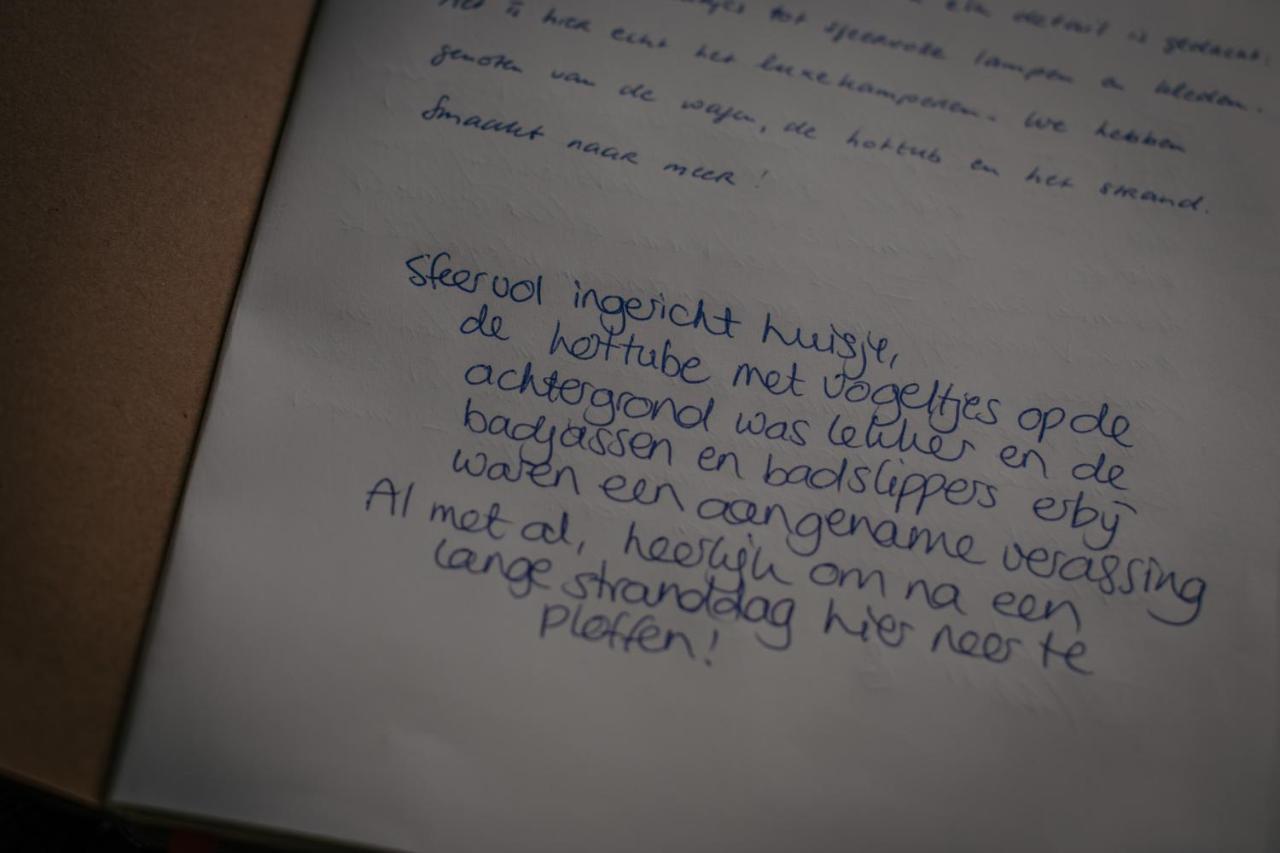 detail is gedacht:
tot sfeervolle lampen en kleden.
Het is hier echt het luxekamperen. We hebben
genoten van de wagen, de hottub en het strand.
Smaakt naar meer!
Sfeervol ingericht huisje,
de hottube met vogeltjes op de
achtergrond was lekker en de
badjassen en badslippers erbij
waren een aangename verassing
Al met al, heerlijk om na een
lange stranddag hier neer te
ploffen!